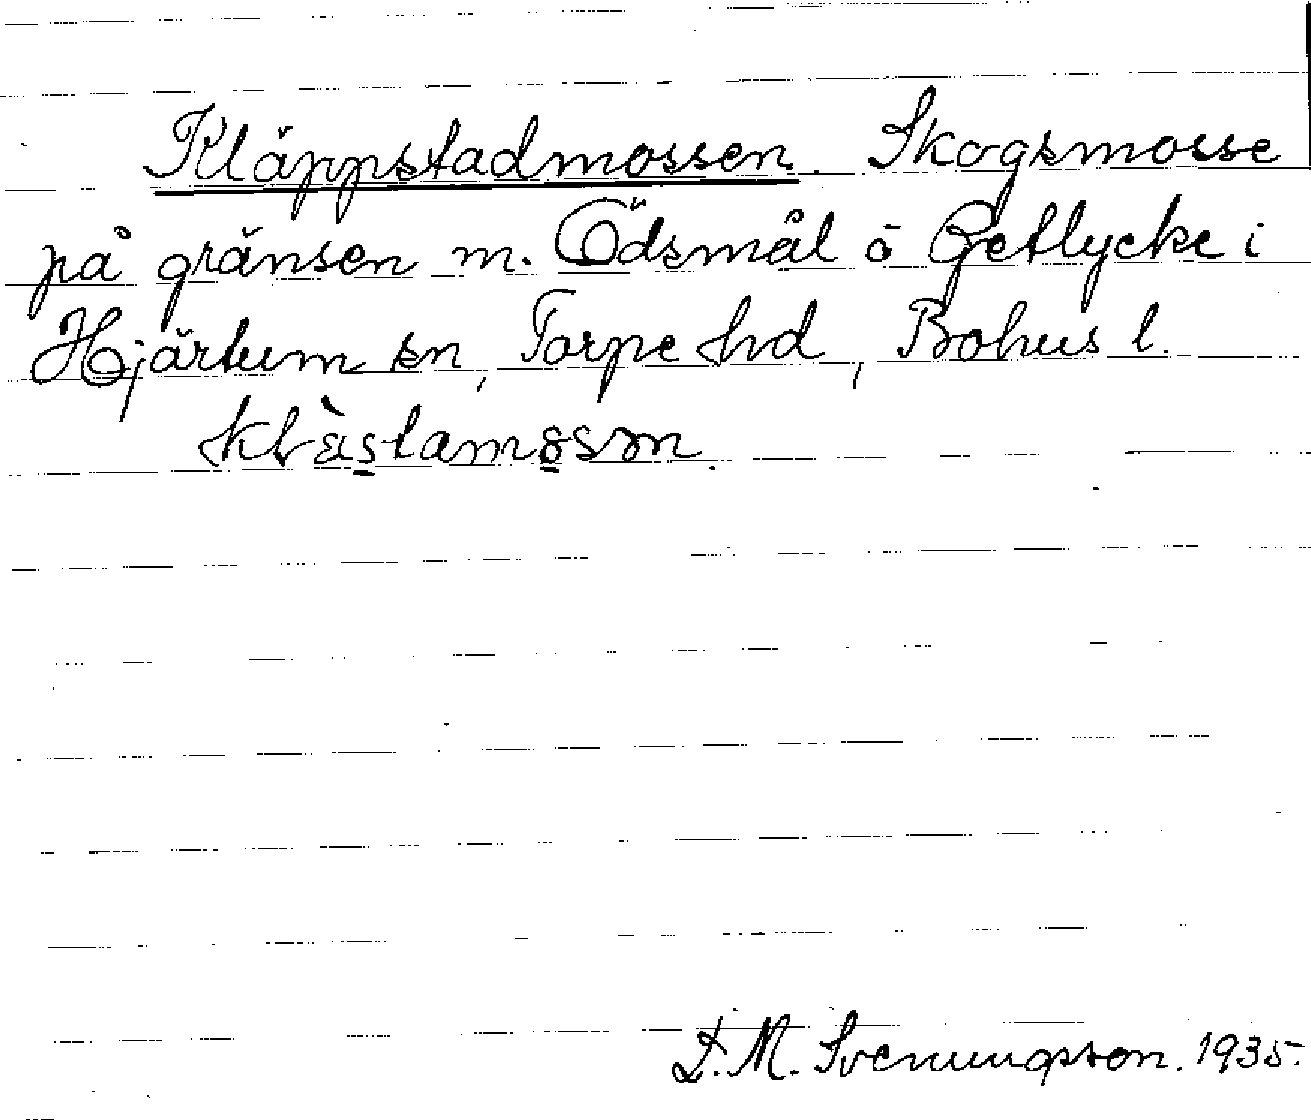 Kläppstadmossen. Skogsmosse
på gränsen m. Ödsmål o Getlycke i
Hjärtum sn, Torpe hd, Bohus l.
1935.